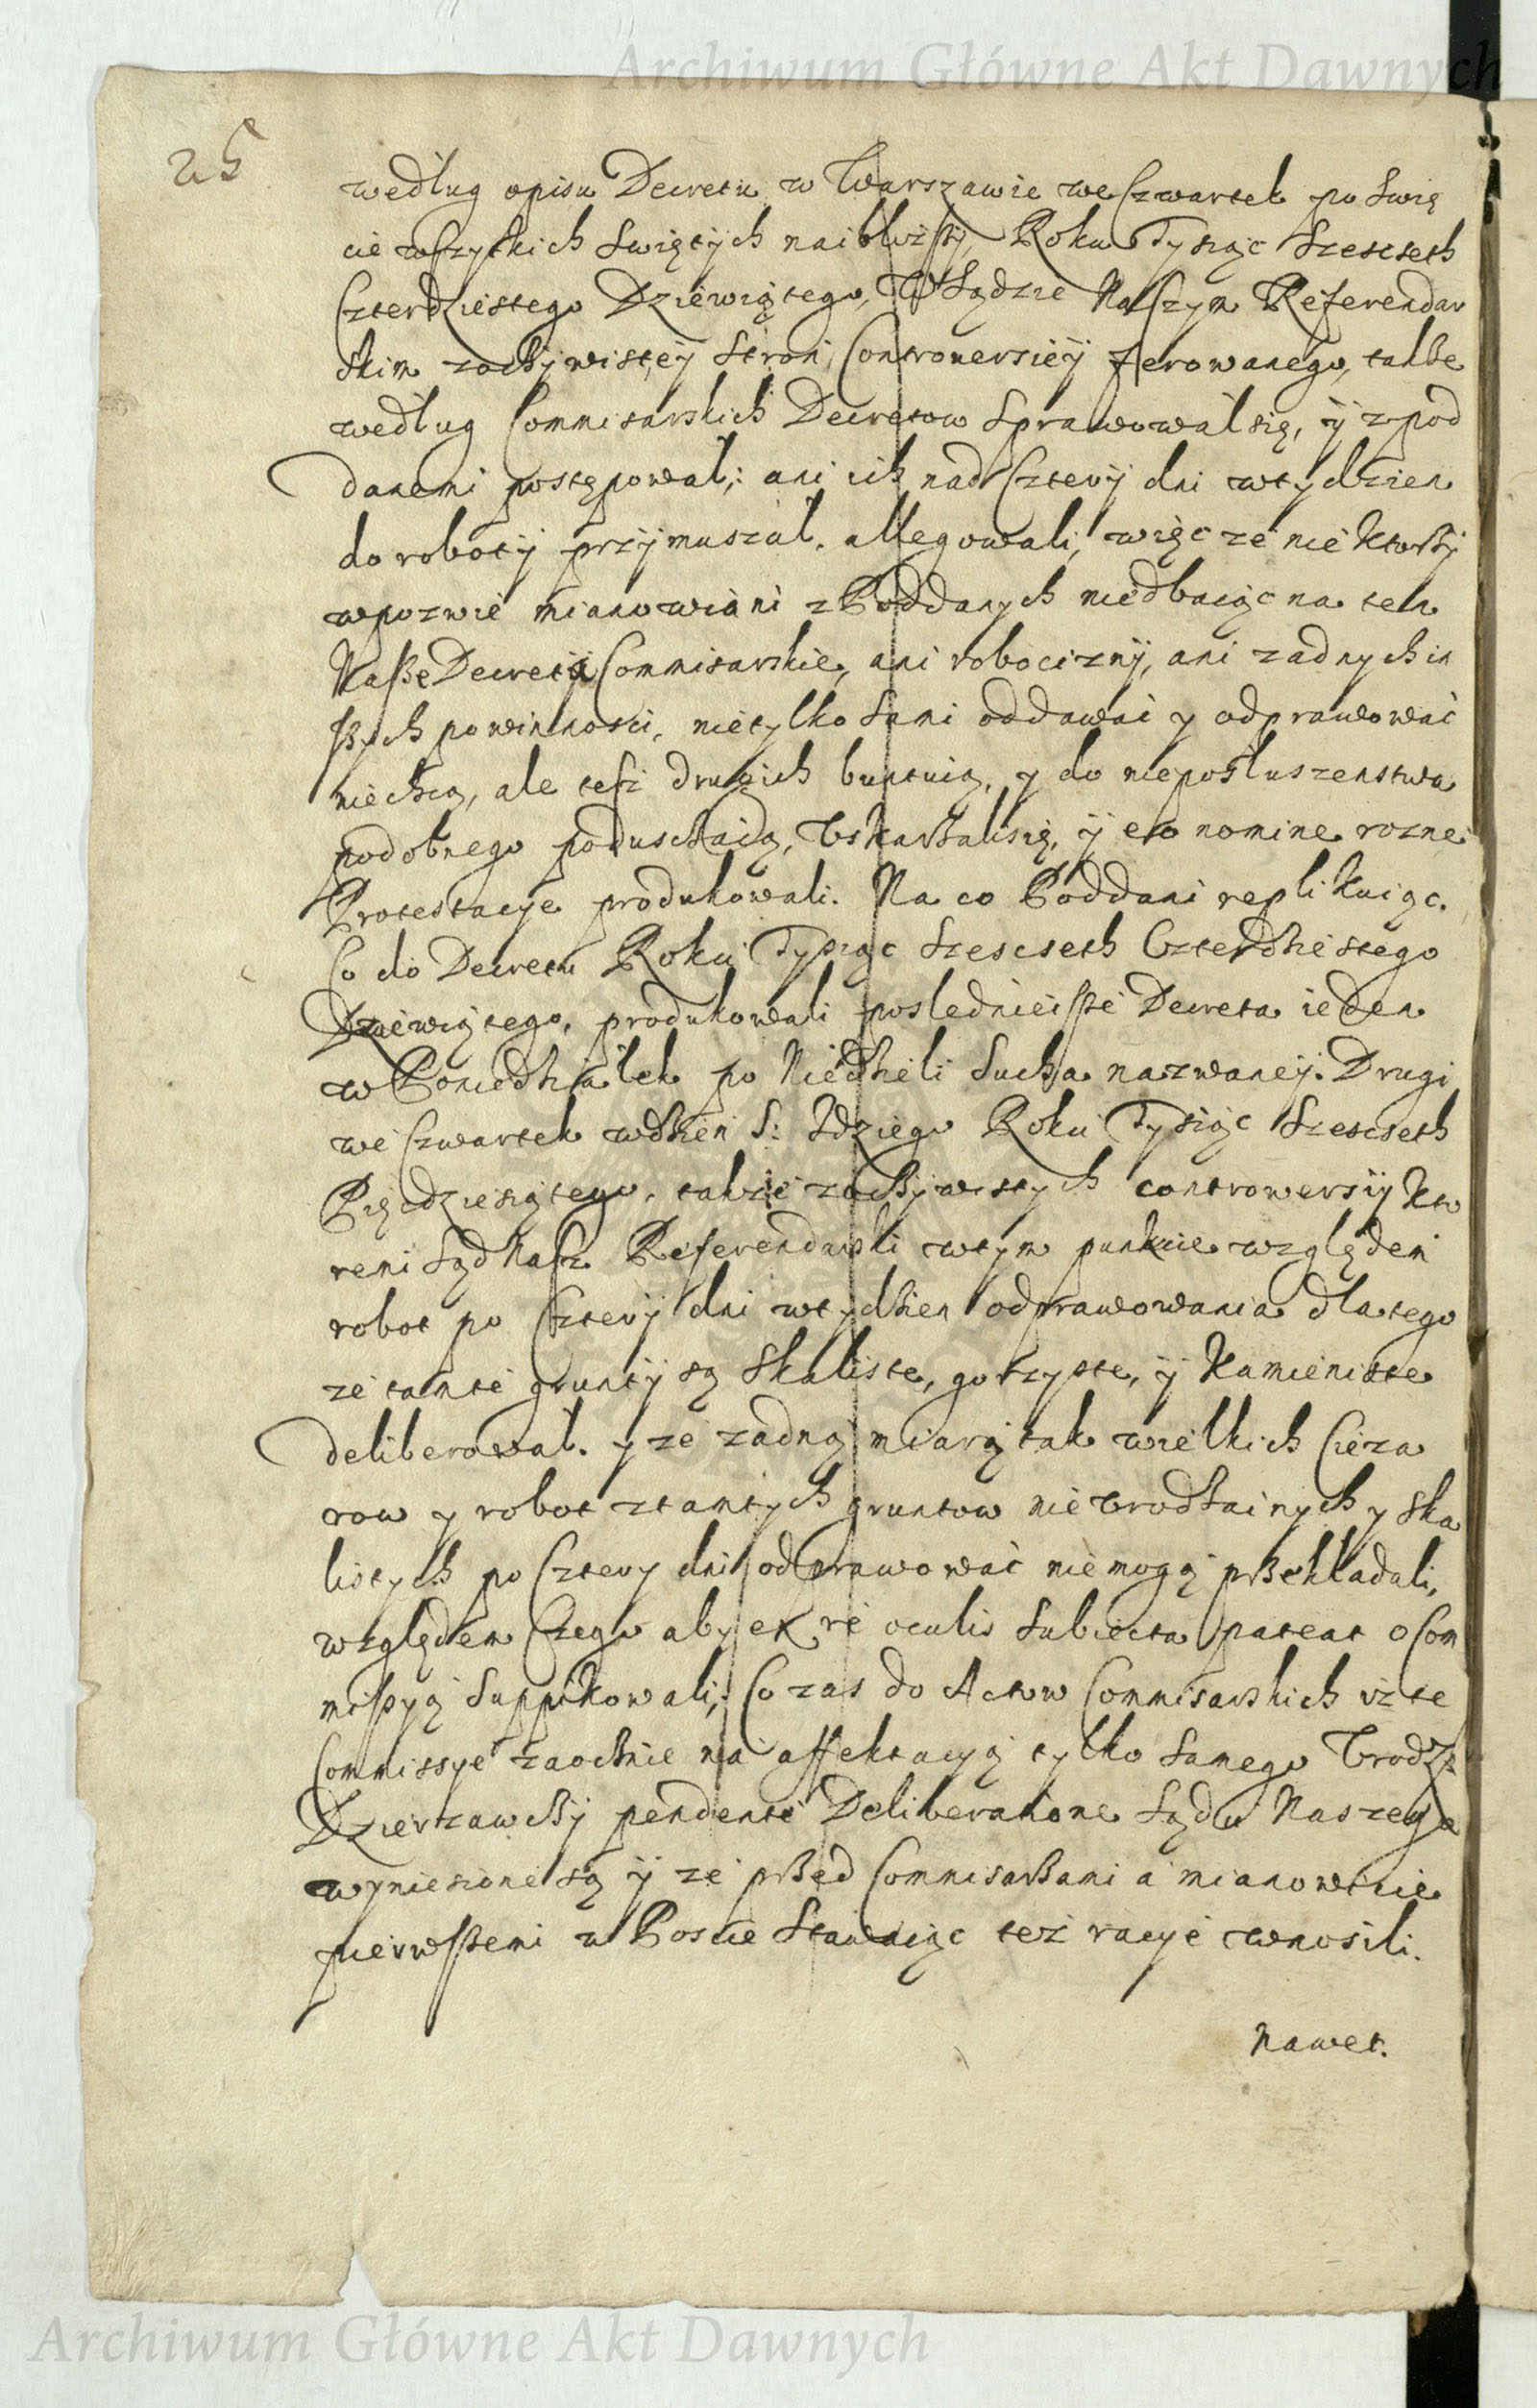 Archiwum Główne Akt Dawnych
25
według opisu Decretu w Warszawie we Czwartek po Swię
cie wszytkich Swiętych naibliższy Roku Tysiąc Szescseth
Czterdziestego Dziewiątego, W Sądzie Naszym Referendar
skim zoczywistey stron Controuersiey ferowanego, także
według Commisarskich Decretow Sprawował się, ÿ zpod
danemi postępował; ani ich nad Cztery dni wtydzien
do robotÿ przÿmuszał. allegowali, więc ze niektorzÿ
wpozwie mianowani z Poddanych niedbaiąc na ten
Nasze Decreta Commisarskie, ani robociznÿ, ani zadnych in
szych powinnosci, nietylko sami oddawać y odprawować
niechcą, ale tesz drugich buntuią, y do nieposłuszenstwa
podobnego poduszczaią, Uskarzalisię, ÿ eo nomine rozne
Protestacye produkowali. Na co Poddani replikuiąc.
Co do Decretu Roku Tysiąc Szescseth Czterdziestego
Dziewiątego, produkowali posledniejsze Decreta ieden
w Poniedziałek po Niedzieli Sucha nazwaneÿ. Drugi
we Czwartek wdzien S: Idziego Roku Tysiąc Szescseth
Pięcdziesiątego, także zoczÿwistych controwersiÿ kto
remi Sąd Nasz Referendarski wtym punkcie względem
robot po Czterÿ dni wtydzien odprawowania dlatego
ze tamte gruntÿ są Skaliste, gorzyste, ÿ Kamieniste
deliberował. y ze zadną miarą tak wielkich Cięza
row y robot ztamtych gruntow nieurodzainych y ska
listych po Cztery dni odprawować niemogą przekładali,
względem Czego aby ex re oculis Subiecta pateat o Com
missyą Supplikowali; Co zas do Actow Commisarskich iz te
Commissye zaocznie na affektacyą tylko Samego Urodz:
Dzierzawcÿ pendente Deliberatione Sądu Naszego
wyniesione są ÿ ze przed Commisarzami a mianowicie
pierwszemi w Poscie Stawaiąc też racye wnosili.
Nawet.
Archiwum Główne Akt Dawnych